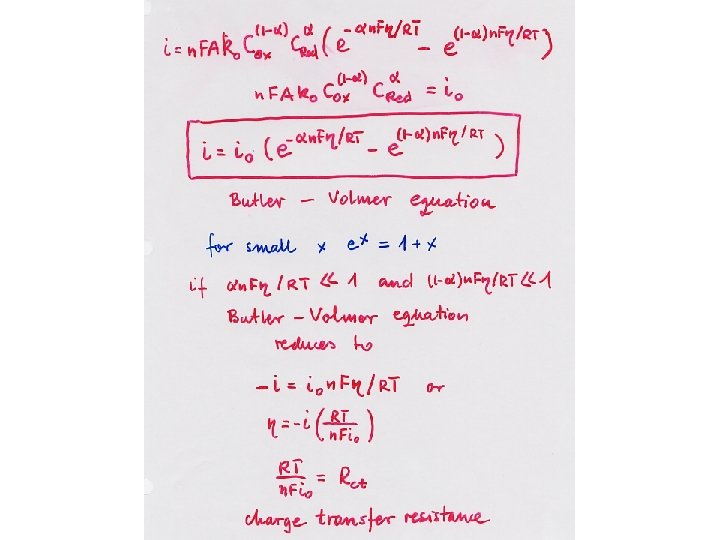 i = nFAk₀C_Ox^(1-α) C_Red^α (e^(-αnFη/RT) - e^((1-α)nFη/RT))
nFAk₀C_Ox^(1-α) C_Red^α = i₀
i = i₀ (e^(-αnFη/RT) - e^((1-α)nFη/RT))
Butler - Volmer equation
for small x e^x = 1 + x
if αnFη/RT ≪ 1 and (1-α)nFη/RT ≪ 1
Butler - Volmer equation
reduces to
-i = i₀nFη/RT or
η = -i (RT/nFi₀)
RT/nFi₀ = R_ct
charge transfer resistance